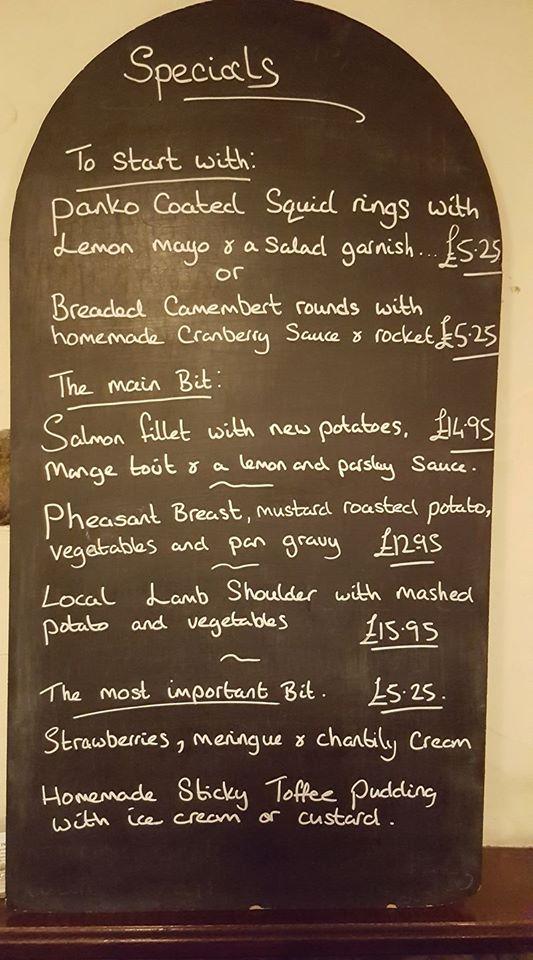 Specials
To Start with:
Panko Coated Squid rings with
Lemon mayo & a Salad garnish... £5.25
or
Breaded Camembert rounds with
homemade Cranberry Sauce & rocket £5.25
The main Bit:
Salmon fillet with new potatoes, £14.95
Mange tout & a lemon and parsley Sauce.
Pheasant Breast, mustard roasted potato,
vegetables and pan gravy £12.95
Local Lamb Shoulder with mashed
potato and vegetables £15.95
The most important Bit. £5.25.
Strawberries, meringue & chantily Cream
Homemade Sticky Toffee Pudding
with ice cream or custard.